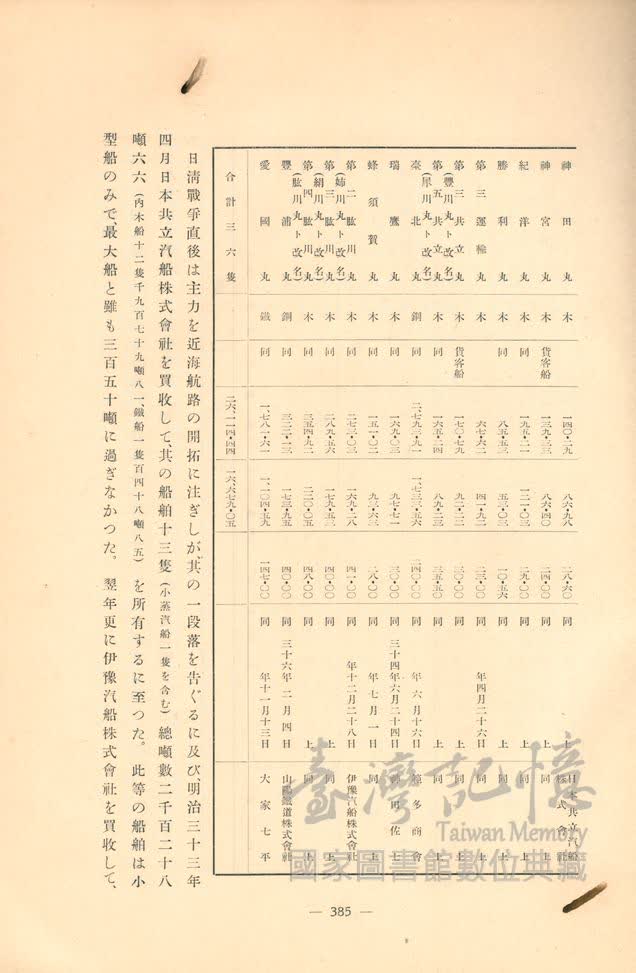 神田丸 木 一四〇・二九 八六・九八 二八・六〇 同 上 日本共立汽船株式會社
神宮丸 木 貨客船 一三九・三三 八六・四〇 二四・〇〇 同 上 同 上
紀洋丸 木 同 一九五・二一 一二一・〇三 二九・〇〇 同 上 同 上
勝利丸 木 同 八五・五三 五三・〇三 一〇・五六 同 上 同 上
第三運輸丸 木 六七・六二 四一・九二 二三・〇〇 同 年四月二十六日 同 上
第三共立丸 木 貨客船 一七〇・七九 九二・二二 三〇・〇〇 同 上 同 上
(豐川丸ト改名)
第五共立丸 木 同 一六五・二四 八九・二三 三五・五〇 同 上 同 上
(川丸ト改名)
臺北丸 鋼 同 二、七九七・九一 一、七三三・五六 二四〇・〇〇 同 年六月十六日 範多商會
瑞鷹丸 木 同 一六九・〇三 九七・七一 三〇・〇〇 同 三十四年六月二十四日 田佐七
蜂須賀丸 木 同 一五一・〇二 九三・六三 二八・〇〇 同 年七月一日 同 上
第二肱川丸 木 同 二七三・〇三 一六九・二八 四一・〇〇 同 年十二月二十八日 伊豫汽船株式會社
(姉川丸ト改名)
第三肱川丸 木 同 二八九・五六 四〇・〇〇 同 上 同 上
(絹川丸ト改名)
第四肱川丸 木 同 三五四・九二 二二〇・〇五 四八・〇〇 同 上 同 上
(肱川丸ト改名)
豐浦丸 鋼 同 三二二・一三 一七三・九五 四〇・〇〇 同 三十六年二月四日 山陽鐵道株式會社
愛國丸 鐵 同 一、七八一・六一 一、一〇四・五九 一四七・〇〇 同 年十一月十三日 大家七平
合計三六隻 二六、一一四・四四 一六、六七九・〇五
日淸戰爭直後は主力を近海航路の開拓に注ぎしが、其の一段落を告ぐるに及び、明治三十三年
四月日本共立汽船株式會社を買收して、其の船舶十三隻(小蒸汽船一隻を含む)總噸數二千百二十八
噸六六(內木船十二隻千九百七十九噸八一、鐵船一隻百四十八噸八五)を所有するに至つた。此等の船舶は小
型船のみで、最大船と雖も三百五十噸に過ぎなかつた。翌年更に伊豫汽船株式會社を買收して、
— 385 —
臺灣記憶
Taiwan Memory
國家圖書館數位典藏